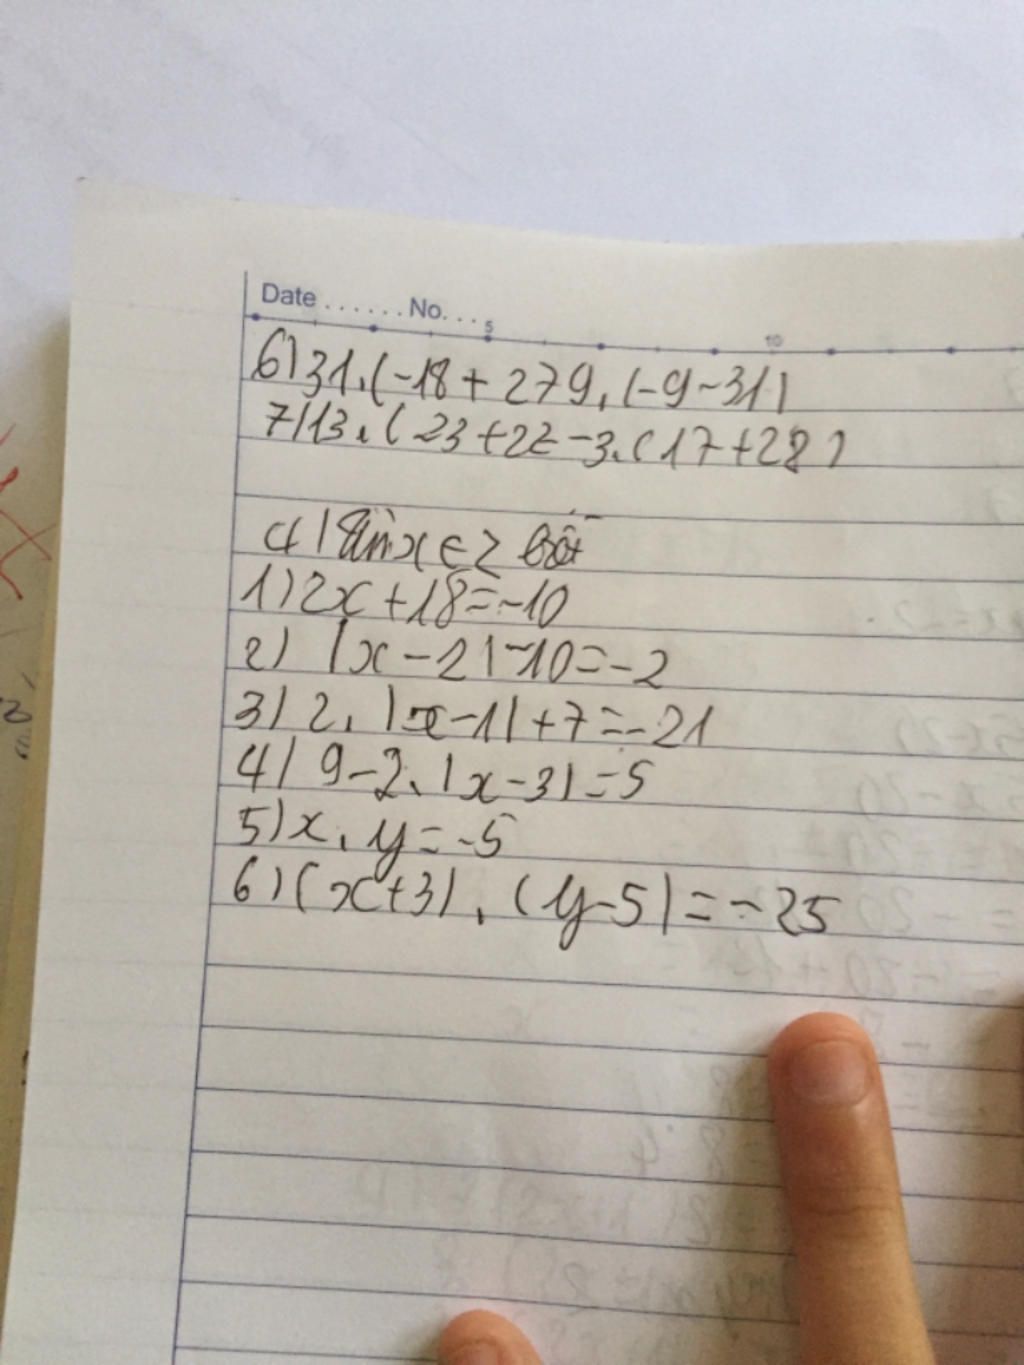 Date ...... No. ...
5
10
6) 31.(-18 + 279.(-9-31)
7) 13.(23+22-3.(17+28)
4) x ∈ Z
1) 2x+18=-10
2) |x-2|-10=-2
3) 2.|x-1|+7=-21
4) 9-2.|x-3|=5
5) x.y=-5
6) (x+3).(y-5)=-25